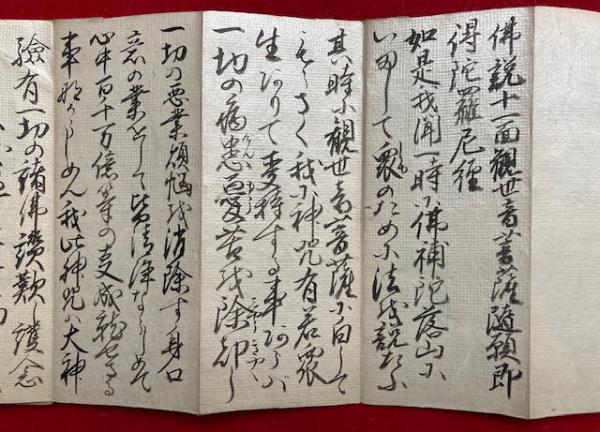 佛説十一面観世音菩薩随願即
得陀羅尼経
如是我聞一時小佛補陀落山小
いまして衆のため小法を説たふ
其時小観世音菩薩小白して
もさく我小神咒有若衆
生ありて受持する事あらバ
一切の病患憂苦を除却し
一切の悪業煩悩を消除す身口
意の業をして皆清浄ならしめて
心中百千万億等の支成就せさる
事なからしめん我此神咒ハ大神
験有一切の諸佛讃歎し護念